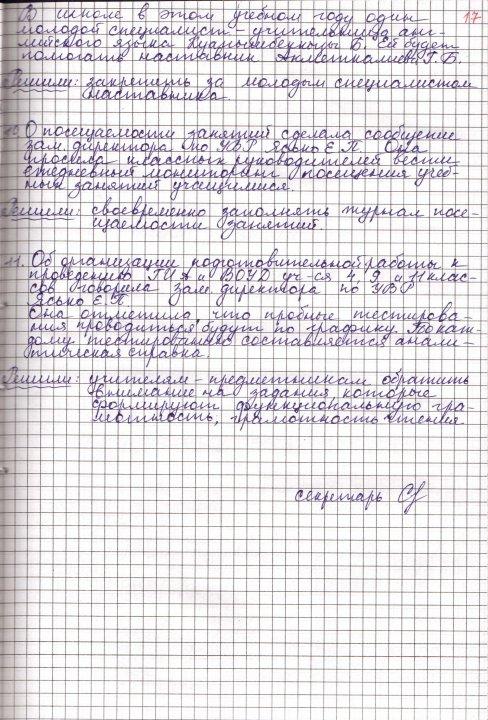 В школе в этом учебном году один 17
молодой специалист - учительница анг-
лийского языка Куанышбекқызы Б. Ей будет
помогать наставник Ахметкалиева Г.Б.
Решили: закрепить за молодым специалистом
наставника.
10. О посещаемости занятий сделала сообщение
зам. директора по УВР Ясько Е.П. Она
просила классных руководителей вести
ежедневный мониторинг посещения учеб-
ных занятий учащимися.
Решили: своевременно заполнять журнал посе-
щаемости занятий.
11. Об организации подготовительной работы к
проведению ГИА и ВОУД уч-ся 4, 9 и 11 клас-
сов говорила зам. директора по УВР
Ясько Е.П.
Она отметила, что пробные тестирова-
ния проводиться будут по графику. По каж-
дому тестированию составляется анали-
тическая справка.
Решили: учителям - предметникам обратить
внимание на задания, которые
формируют функциональную гра-
мотность, грамотность чтения.
секретарь